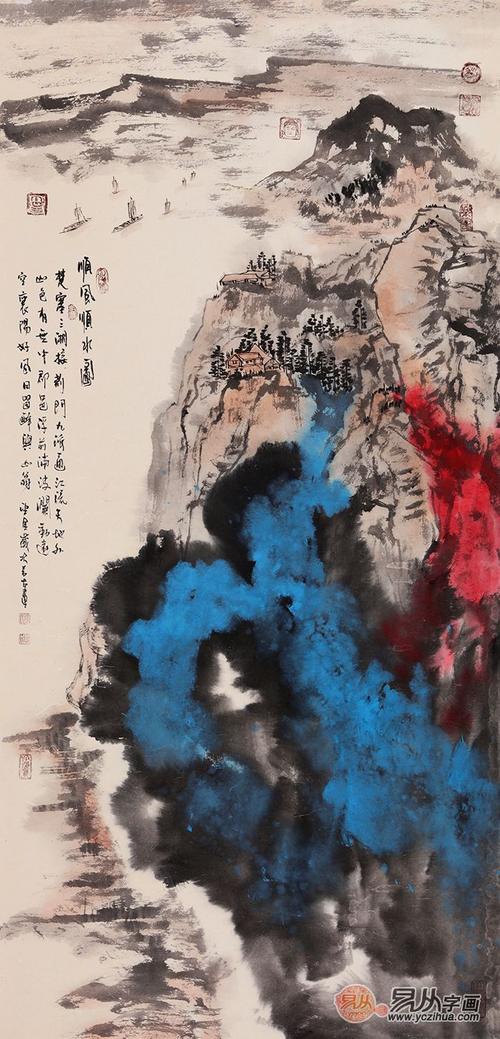 順風順水圖
楚塞三湘接荊門九派通江流天地外
山色有無中郡邑浮前浦波瀾動遠
空襄陽好風日留醉與山翁
易从
易从字画
www.yczihua.com